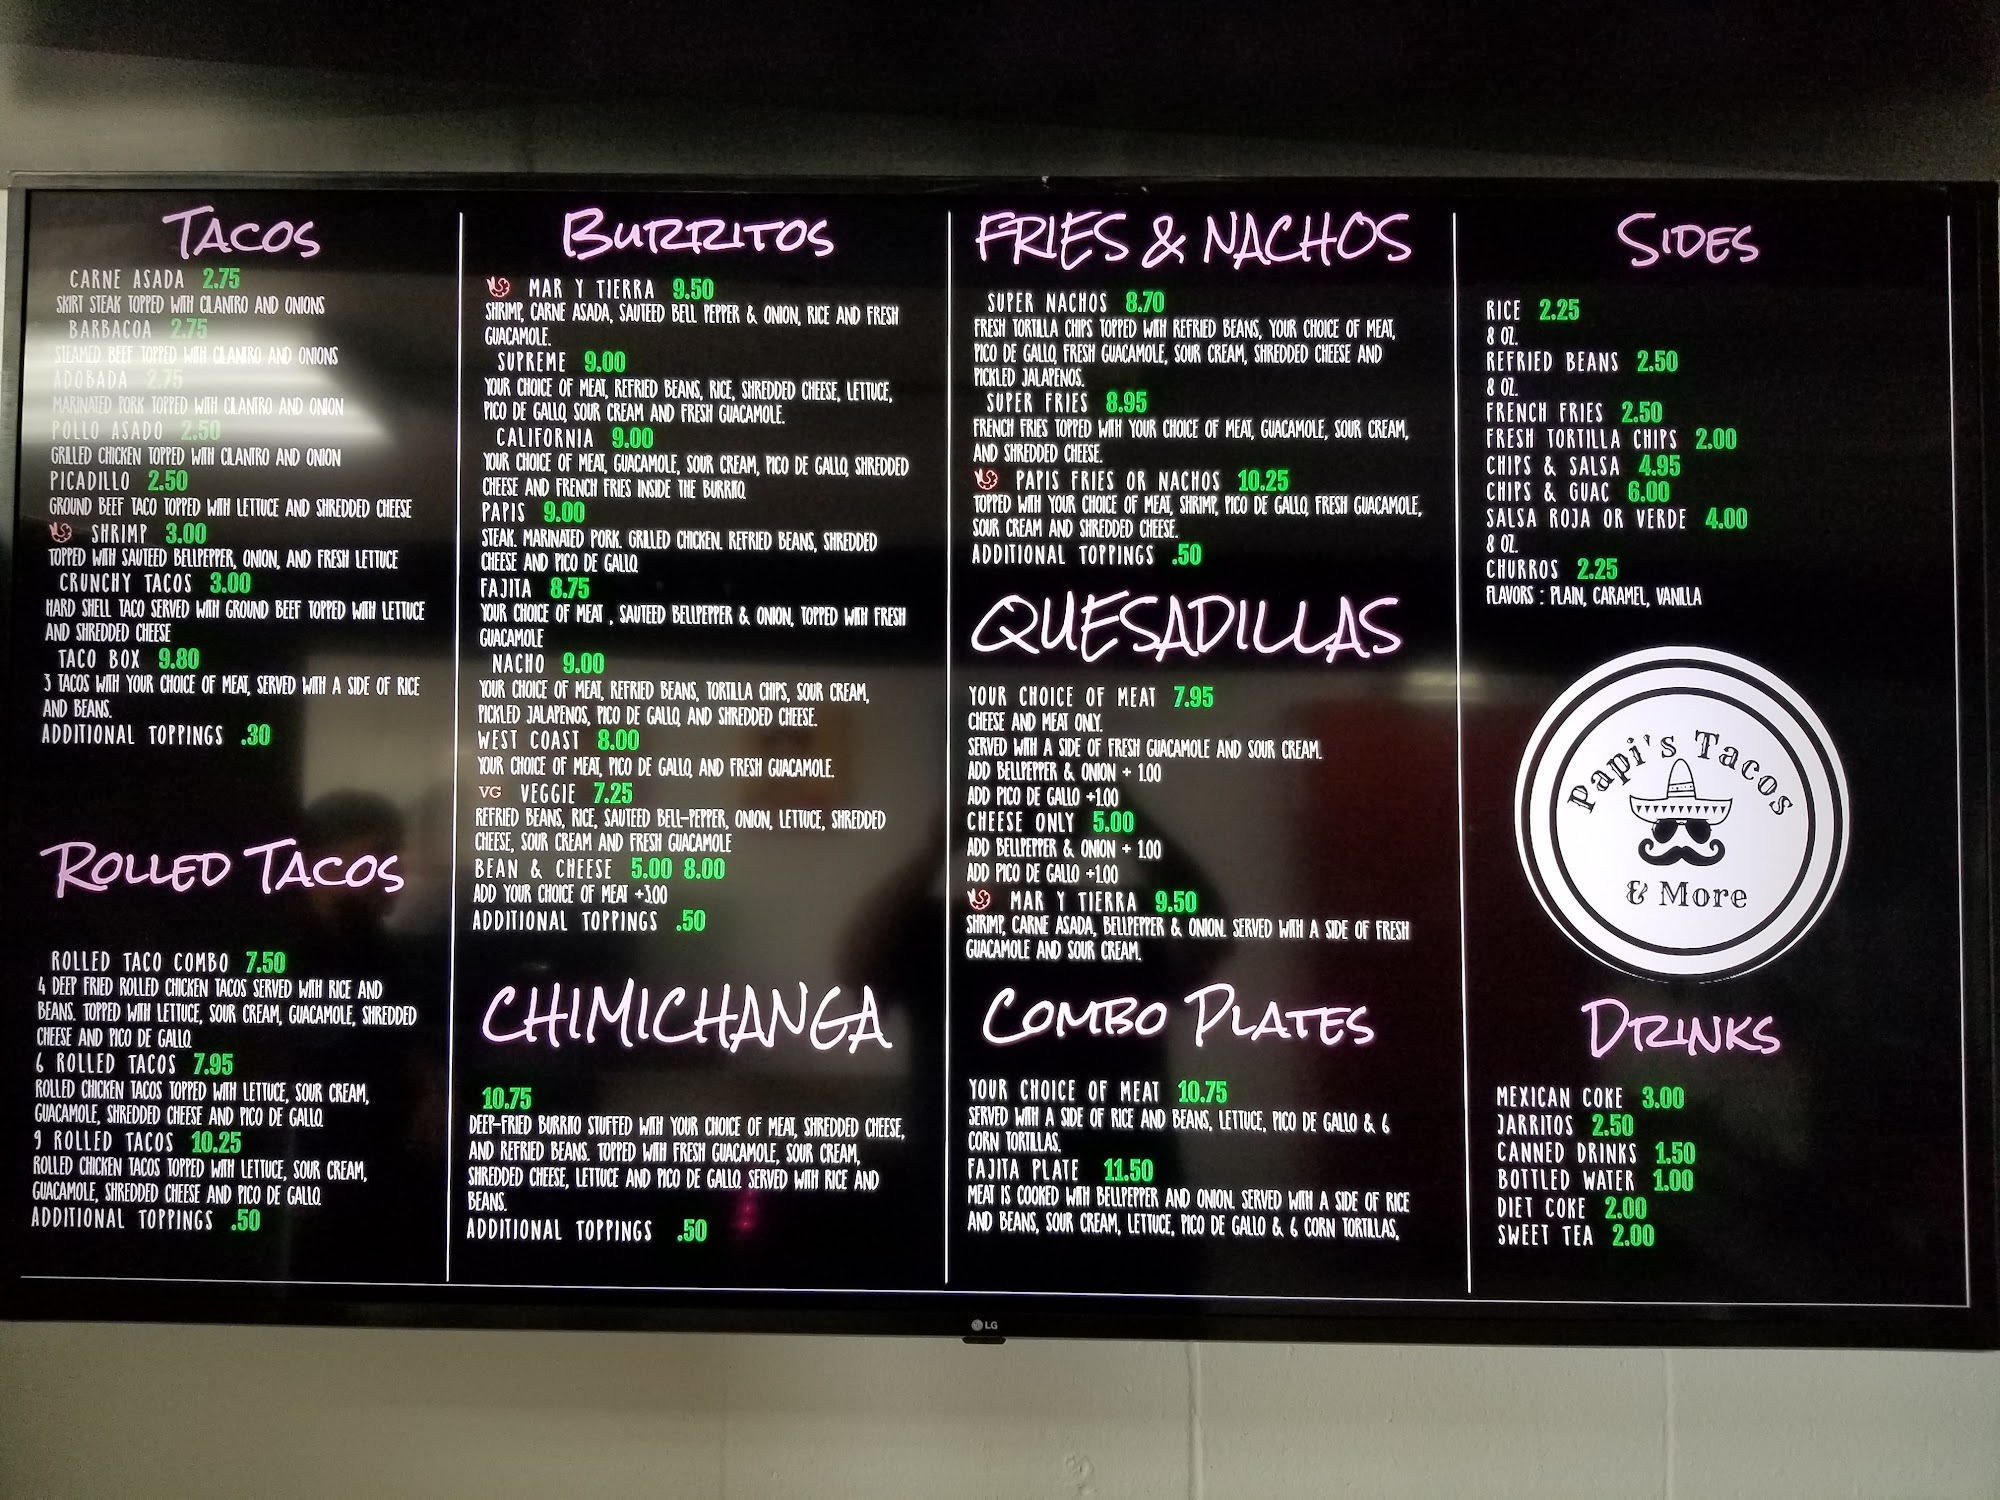 TACOS
CARNE ASADA 2.75
SKIRT STEAK TOPPED WITH CILANTRO AND ONIONS
BARBACOA 2.75
STEAMED BEEF TOPPED WITH CILANTRO AND ONIONS
ADOBADA 2.75
MARINATED PORK TOPPED WITH CILANTRO AND ONION
POLLO ASADO 2.50
GRILLED CHICKEN TOPPED WITH CILANTRO AND ONION
PICADILLO 2.50
GROUND BEEF TACO TOPPED WITH LETTUCE AND SHREDDED CHEESE
SHRIMP 3.00
TOPPED WITH SAUTEED BELLPEPPER, ONION, AND FRESH LETTUCE
CRUNCHY TACOS 3.00
HARD SHELL TACO SERVED WITH GROUND BEEF TOPPED WITH LETTUCE
AND SHREDDED CHEESE
TACO BOX 9.80
3 TACOS WITH YOUR CHOICE OF MEAT, SERVED WITH A SIDE OF RICE
AND BEANS.
ADDITIONAL TOPPINGS .30
ROLLED TACOS
ROLLED TACO COMBO 7.50
4 DEEP FRIED ROLLED CHICKEN TACOS SERVED WITH RICE AND
BEANS. TOPPED WITH LETTUCE, SOUR CREAM, GUACAMOLE, SHREDDED
CHEESE AND PICO DE GALLO.
6 ROLLED TACOS 7.95
ROLLED CHICKEN TACOS TOPPED WITH LETTUCE, SOUR CREAM,
GUACAMOLE, SHREDDED CHEESE AND PICO DE GALLO.
9 ROLLED TACOS 10.25
ROLLED CHICKEN TACOS TOPPED WITH LETTUCE, SOUR CREAM,
GUACAMOLE, SHREDDED CHEESE AND PICO DE GALLO.
ADDITIONAL TOPPINGS .50
BURRITOS
MAR Y TIERRA 9.50
SHRIMP, CARNE ASADA, SAUTEED BELL PEPPER & ONION, RICE AND FRESH
GUACAMOLE.
SUPREME 9.00
YOUR CHOICE OF MEAT, REFRIED BEANS, RICE, SHREDDED CHEESE, LETTUCE,
PICO DE GALLO, SOUR CREAM AND FRESH GUACAMOLE.
CALIFORNIA 9.00
YOUR CHOICE OF MEAT, GUACAMOLE, SOUR CREAM, PICO DE GALLO, SHREDDED
CHEESE AND FRENCH FRIES INSIDE THE BURRITO.
PAPIS 9.00
STEAK. MARINATED PORK. GRILLED CHICKEN. REFRIED BEANS, SHREDDED
CHEESE AND PICO DE GALLO.
FAJITA 8.75
YOUR CHOICE OF MEAT , SAUTEED BELLPEPPER & ONION, TOPPED WITH FRESH
GUACAMOLE
NACHO 9.00
YOUR CHOICE OF MEAT, REFRIED BEANS, TORTILLA CHIPS, SOUR CREAM,
PICKLED JALAPENOS, PICO DE GALLO, AND SHREDDED CHEESE.
WEST COAST 8.00
YOUR CHOICE OF MEAT, PICO DE GALLO, AND FRESH GUACAMOLE.
VG VEGGIE 7.25
REFRIED BEANS, RICE, SAUTEED BELL-PEPPER, ONION, LETTUCE, SHREDDED
CHEESE, SOUR CREAM AND FRESH GUACAMOLE
BEAN & CHEESE 5.00 8.00
ADD YOUR CHOICE OF MEAT +3.00
ADDITIONAL TOPPINGS .50
CHIMICHANGA
10.75
DEEP-FRIED BURRITO STUFFED WITH YOUR CHOICE OF MEAT, SHREDDED CHEESE,
AND REFRIED BEANS. TOPPED WITH FRESH GUACAMOLE, SOUR CREAM,
SHREDDED CHEESE, LETTUCE AND PICO DE GALLO. SERVED WITH RICE AND
BEANS.
ADDITIONAL TOPPINGS .50
FRIES & NACHOS
SUPER NACHOS 8.70
FRESH TORTILLA CHIPS TOPPED WITH REFRIED BEANS, YOUR CHOICE OF MEAT,
PICO DE GALLO, FRESH GUACAMOLE, SOUR CREAM, SHREDDED CHEESE AND
PICKLED JALAPENOS.
SUPER FRIES 8.95
FRENCH FRIES TOPPED WITH YOUR CHOICE OF MEAT, GUACAMOLE, SOUR CREAM,
AND SHREDDED CHEESE.
PAPIS FRIES OR NACHOS 10.25
TOPPED WITH YOUR CHOICE OF MEAT, SHRIMP, PICO DE GALLO, FRESH GUACAMOLE,
SOUR CREAM AND SHREDDED CHEESE.
ADDITIONAL TOPPINGS .50
QUESADILLAS
YOUR CHOICE OF MEAT 7.95
CHEESE AND MEAT ONLY.
SERVED WITH A SIDE OF FRESH GUACAMOLE AND SOUR CREAM.
ADD BELLPEPPER & ONION + 1.00
ADD PICO DE GALLO +1.00
CHEESE ONLY 5.00
ADD BELLPEPPER & ONION + 1.00
ADD PICO DE GALLO +1.00
MAR Y TIERRA 9.50
SHRIMP, CARNE ASADA, BELLPEPPER & ONION. SERVED WITH A SIDE OF FRESH
GUACAMOLE AND SOUR CREAM.
COMBO PLATES
YOUR CHOICE OF MEAT 10.75
SERVED WITH A SIDE OF RICE AND BEANS, LETTUCE, PICO DE GALLO & 6
CORN TORTILLAS.
FAJITA PLATE 11.50
MEAT IS COOKED WITH BELLPEPPER AND ONION. SERVED WITH A SIDE OF RICE
AND BEANS, SOUR CREAM, LETTUCE, PICO DE GALLO & 6 CORN TORTILLAS,
SIDES
RICE 2.25
8 OZ.
REFRIED BEANS 2.50
8 OZ.
FRENCH FRIES 2.50
FRESH TORTILLA CHIPS 2.00
CHIPS & SALSA 4.95
CHIPS & GUAC 6.00
SALSA ROJA OR VERDE 4.00
8 OZ.
CHURROS 2.25
FLAVORS : PLAIN, CARAMEL, VANILLA
Papi's Tacos
& More
DRINKS
MEXICAN COKE 3.00
JARRITOS 2.50
CANNED DRINKS 1.50
BOTTLED WATER 1.00
DIET COKE 2.00
SWEET TEA 2.00
LG